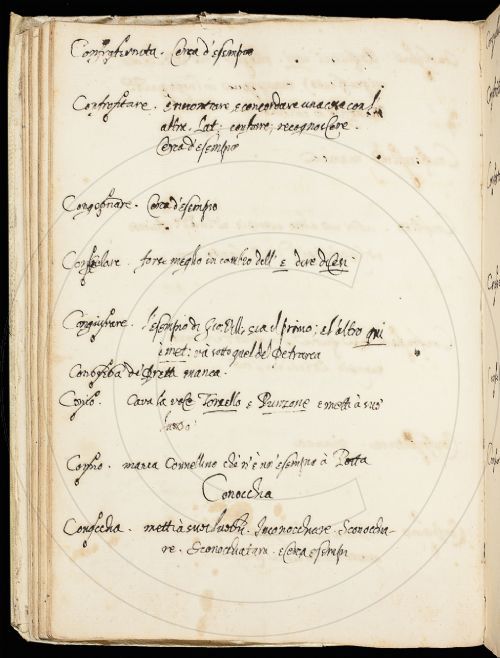 Confraternita. Cerca d'esempio
Confrontare. è riscontrare, e concordare una cosa con l'
altre. Lat: conferre, recognoscere.
Cerca d'esempio
Cerca d'esempio
forse meglio in cambio dell' e dire di Cesi
Congiurare. l'esempio di Gio: Vill: sia il primo: e l'altro qui
è met: và sotto quel del Petrarca
manca.
Conio. Cava la voce Torsello e Punzone e metti à suo
luogo
Conio. manca Connellino che n'è un' esempio à Porta
Conocchia
Conocchia. metti à suoi luoghi. Inconocchiare. Sconocchia-
re. Sconocchiatura. e cerca esempi